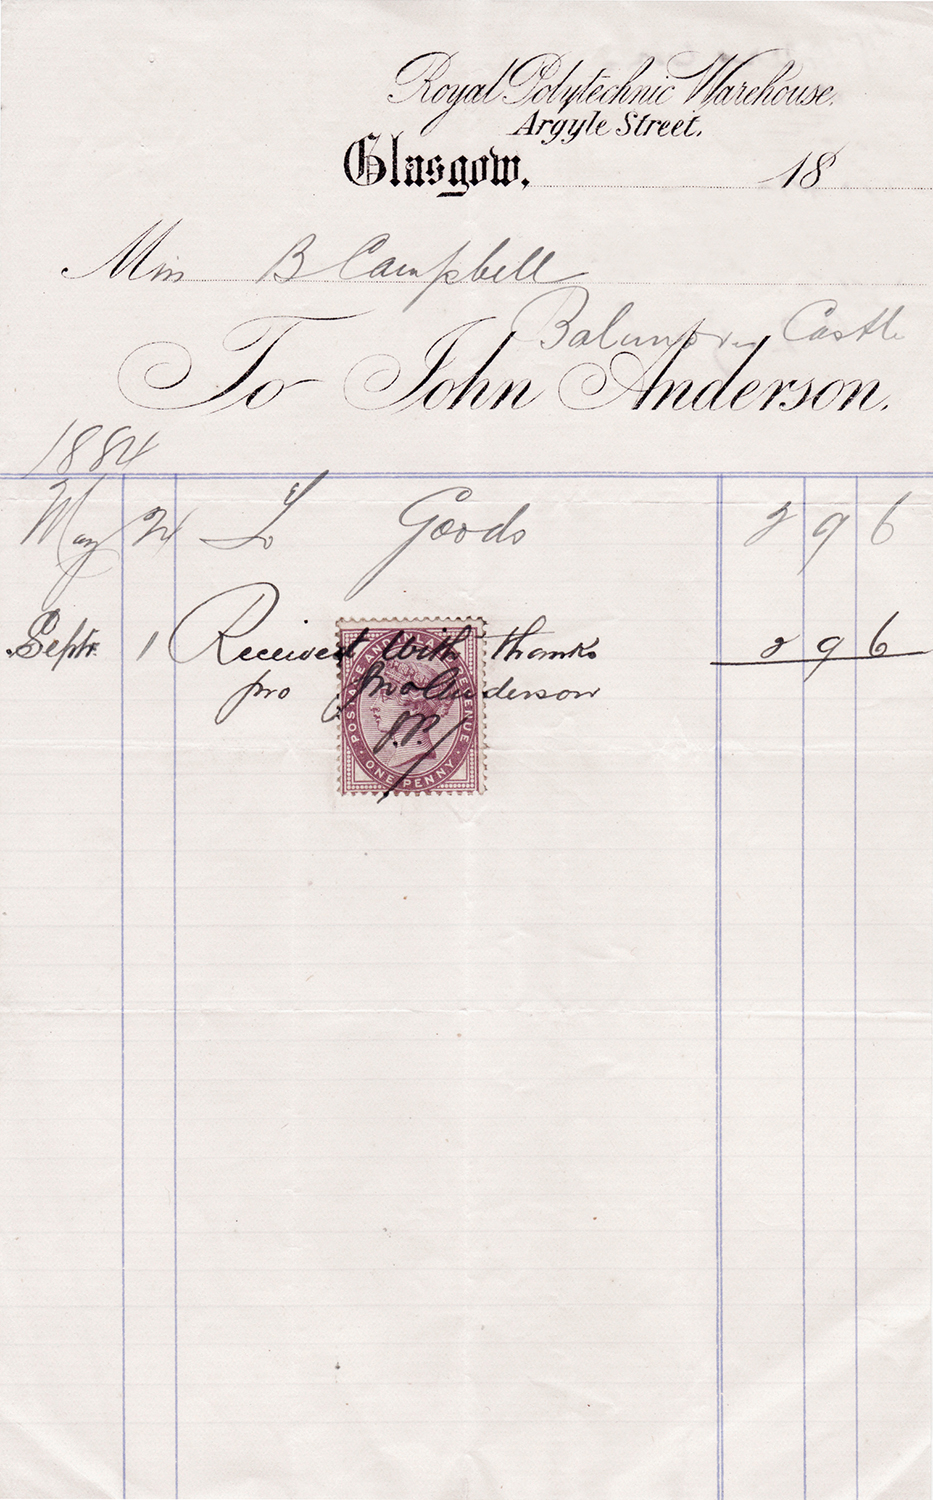 Royal Polytechnic Warehouse.
Argyle Street.
Glasgow, 18
Miss B Campbell
Castle
To John Anderson.
1884
May 24 To Goods 2 9 6
Septr. 1 Received with thanks 2 9 6
pro Jno Anderson
J.P.
POSTAGE AND INLAND REVENUE
ONE PENNY